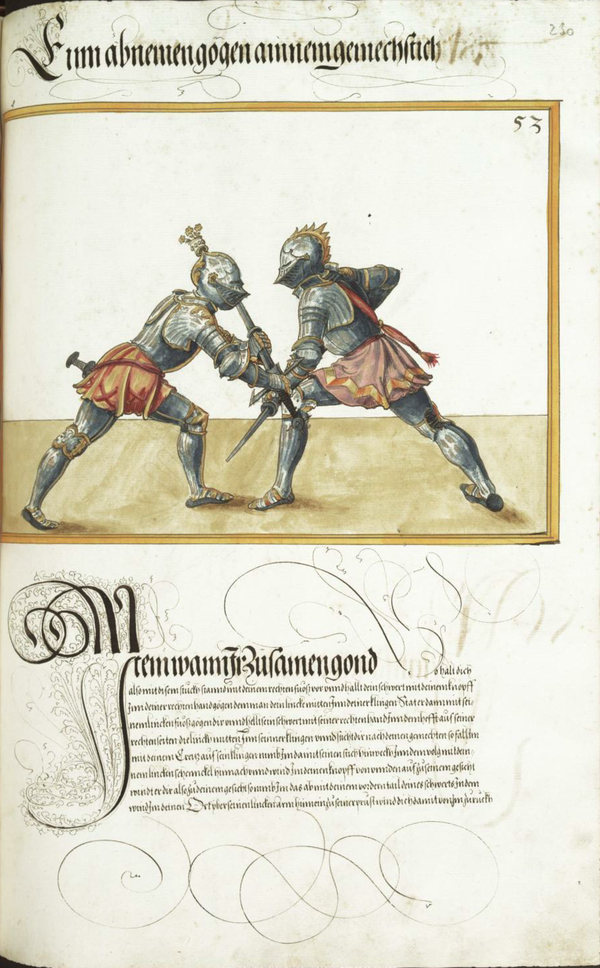 Ein abnemen gögen ainnem gemechstich
230
53
Item wann Ir Zusamen gond so halt dich
also mit disem stuckh stannd mit deinem rechten fuös vor vnnd halt dein schwert mit deinem knopff
Inn deiner rechten hand gögen dem man den linckë mitten Inn deiner klingen Stat er dann mit sei-
nem lincken fuös gögen dir vnnd helt sein schwert mit seiner rechten hand Inn dem hefft auf seiner
rechten seiten die linckh mitten Inn seiner klingen vnnd sticht dir nach deinen gemechten so fall Im
mit deinem Creitz auf sein klingen nimb Im damit seinen stich hinweckh Inn dem volg mit dein-
nem lincken schennckel hinnach vnnd wind Im deinen knopff von vnnden auf zu seinem gesicht
windt er dir also zu deinem gesicht so nimb Im das ab mit deinem vordern tail deines schwerts Inn dem
wind Im deinen Ort yber seinen lincken arm hinein zu seiner prust wind dich damit von Im zuruckh